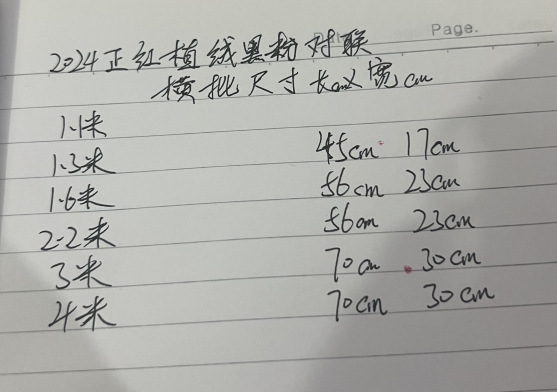 Page.
2024正红植绒黑粉对联
横批尺寸 长cm×宽cm
1.1米
1.3米 45cm 17cm
1.6米 56cm 23cm
2.2米 56cm 23cm
3米 70cm 30cm
4米 70cm 30cm